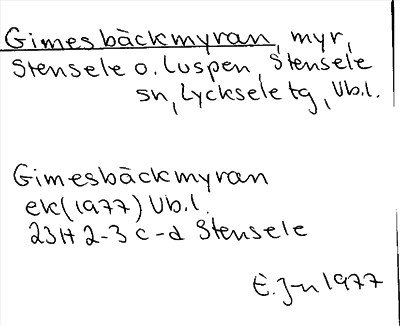 Gimesbäckmyran, myr,
Stensele o. Luspen, Stensele
sn, Lycksele tg, Vb.l.
Gimesbäckmyran
ek(1977) Vb.l.
23H 2-3 c-d Stensele
E. J-n 1977